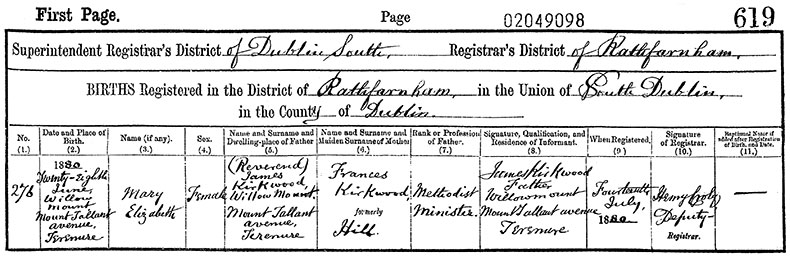 First Page. Page 02049098 619
Superintendent Registrar's District of Dublin South, Registrar's District of Rathfarnham,
BIRTHS Registered in the District of Rathfarnham, in the Union of South Dublin,
in the County of Dublin.
No. (1.)
Date and Place of Birth. (2.)
Name (if any). (3.)
Sex. (4.)
Name and Surname and Dwelling-place of Father (5.)
Name and Surname and Maiden Surname of Mother (6.)
Rank or Profession of Father. (7.)
Signature, Qualification, and Residence of Informant. (8.)
When Registered. (9.)
Signature of Registrar. (10.)
Baptismal Name if added after Registration of Birth, and Date. (11.)
276
1880
Twenty-Eighth
June,
Willow
Mount
Mount Tallant
avenue,
Terenure
Mary
Elizabeth
Female
(Reverend)
James
Kirkwood
Willow Mount.
Mount Tallant
avenue,
Terenure
Frances
Kirkwood,
formerly
Hill.
Methodist
Minister.
James Kirkwood
Father
Willowmount
Mount Tallant avenue
Terenure
Fourteenth
July,
1880.
Henry Croly
Deputy
Registrar.
—